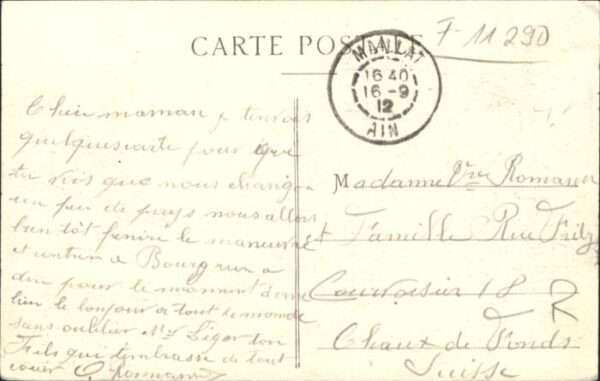 CARTE POSTALE
F 11290
MAILLAT
16 40
16-9
12
AIN
Cheir maman je tenvois
quelquescarte pour que
ta vis que nous change
un peu de pays nous allons
bien tôt finire le maneuvre
et rentrer a Bourg rien a
dire pour le moment donne
bien le bonjour a tout le monde
sans oublier Ligor ton
Fils qui tembrasse de tout
coeur
Madame Vve Romasser
et Famille Rue Fritz
Courvoisier 18
R
Chaux de Fonds
Suisse